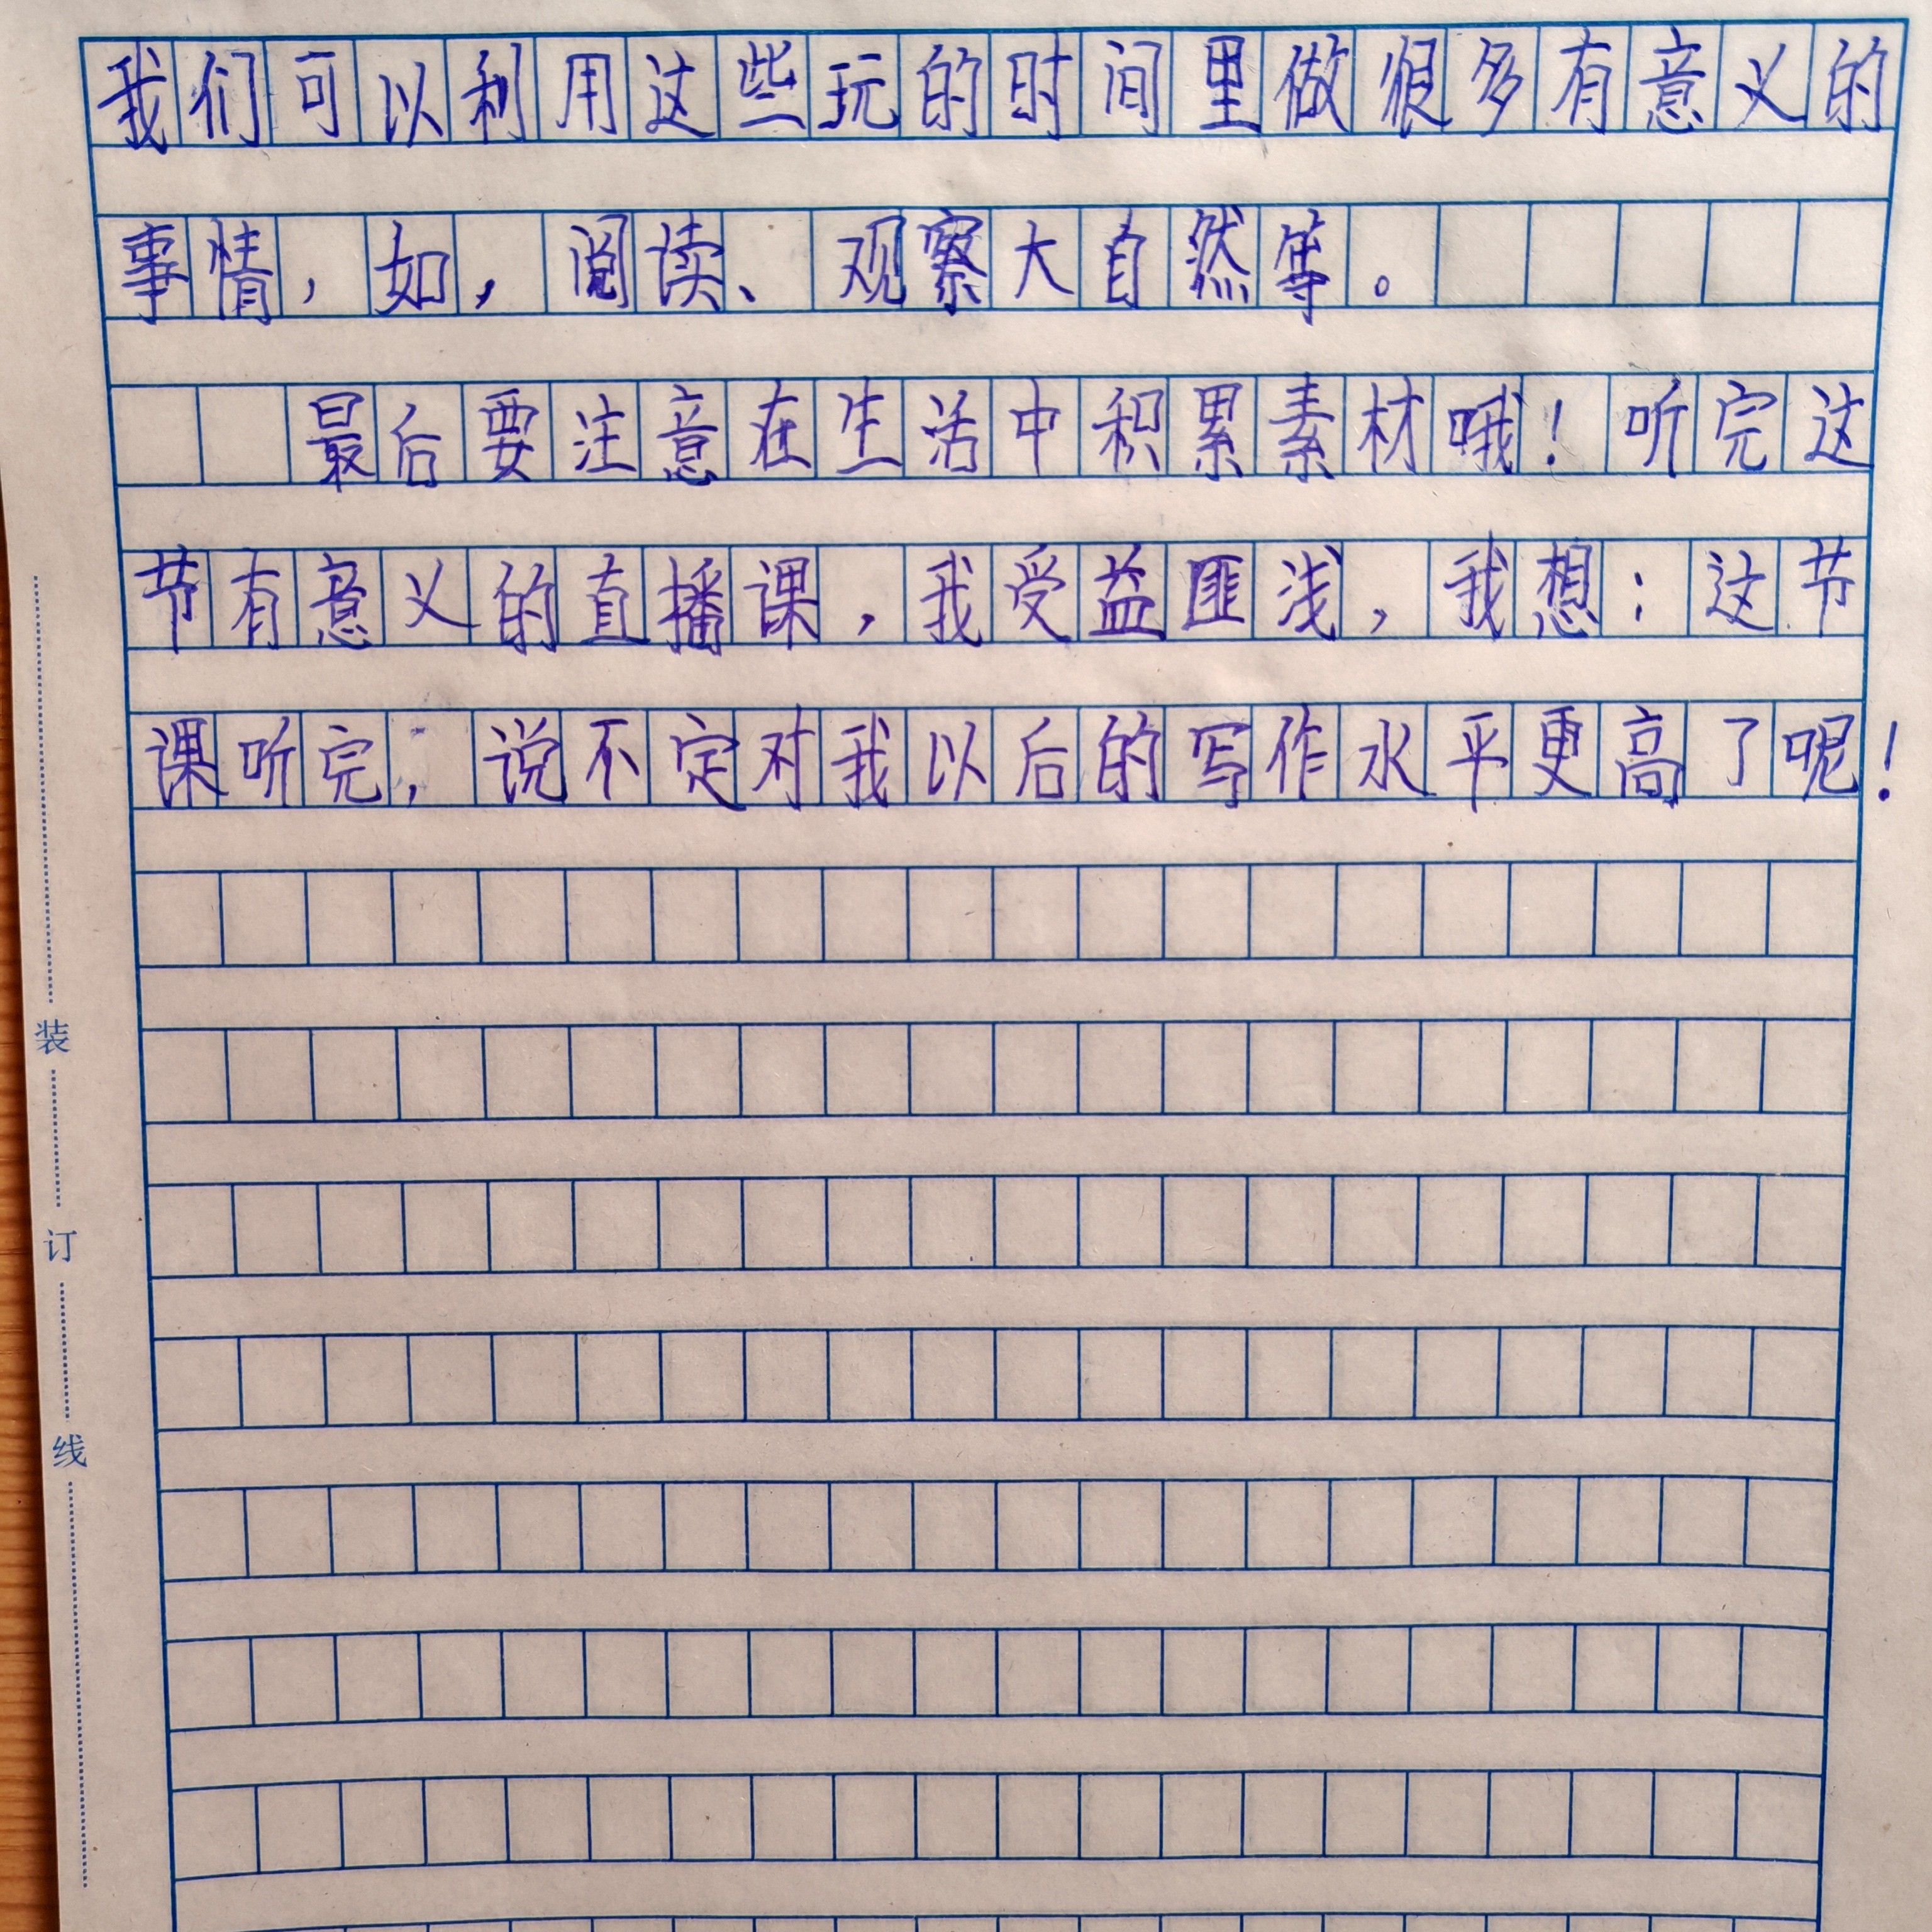 我们可以利用这些玩的时间里做很多有意义的
事情，如，阅读、观察大自然等。
最后要注意在生活中积累素材哦！听完这
节有意义的直播课，我受益匪浅，我想：这节
课听完，说不定对我以后的写作水平更高了呢！
装
订
线